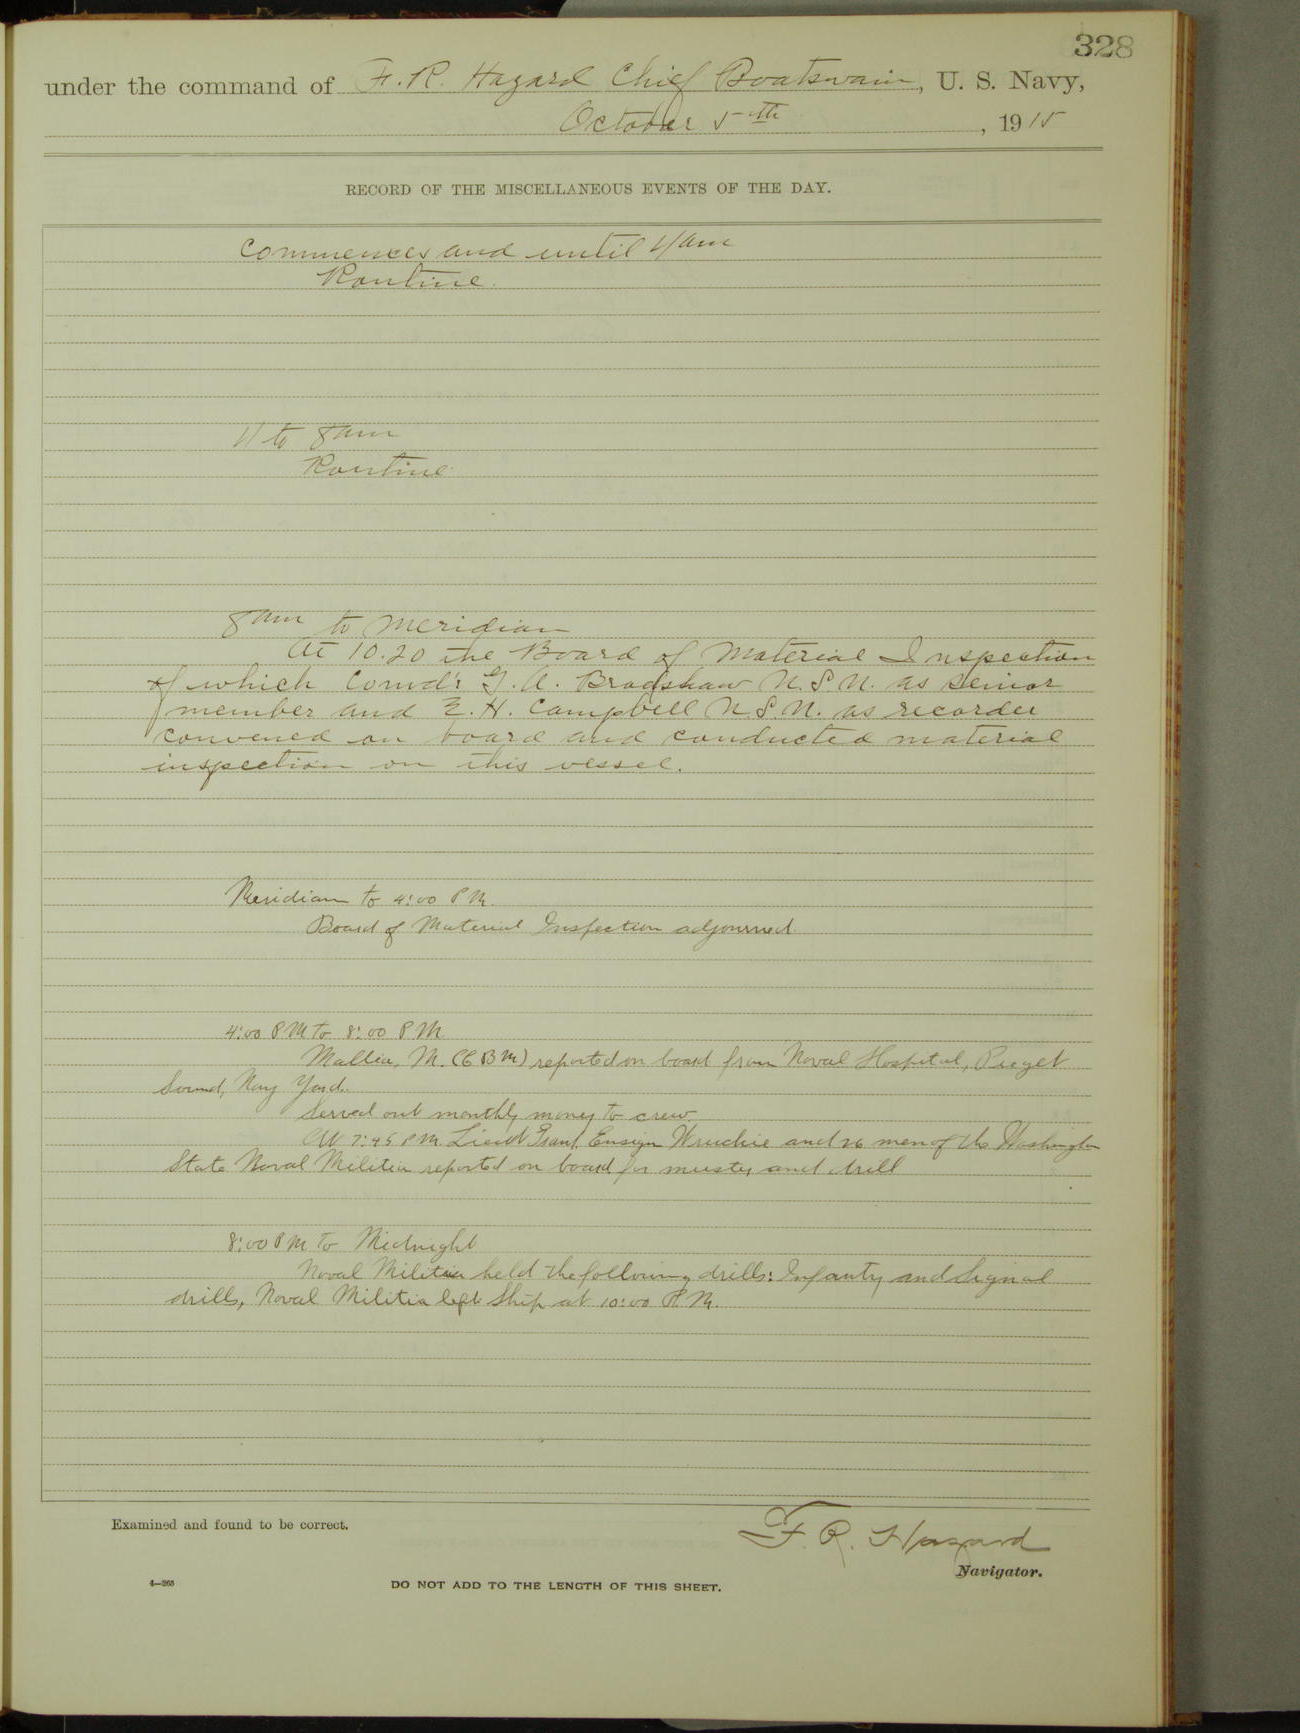 328
under the command of F. R. Hazard Chief Boatswain, U. S. Navy,
October 5th, 1915
RECORD OF THE MISCELLANEOUS EVENTS OF THE DAY.
Commences and until 4 am
Routine.
4 to 8 am
Routine
8 am to Meridian
At 10.20 the Board of Material Inspection
of which Comd'r G. A. Bradshaw U.S.N. as senior
member and E. H. Campbell U.S.N. as recorder
convened on board and conducted material
inspection on this vessel.
Meridian to 4:00 P.M.
Board of Material Inspection adjourned
4:00 P M to 8:00 P M
M. (C B M) reported on board from Naval Hospital, Puget
Sound, Navy Yard.
Served out monthly money to crew.
At 7:45 P.M. Lieut Grant, Ensign and 26 men of the Washington
State Naval Militia reported on board for muster and drill
8:00 P M to Midnight
Naval Militia held the following drills: Infantry and Signal
drills, Naval Militia left ship at 10:00 P.M.
Examined and found to be correct.
F. R. Hazard
Navigator.
4—265
DO NOT ADD TO THE LENGTH OF THIS SHEET.